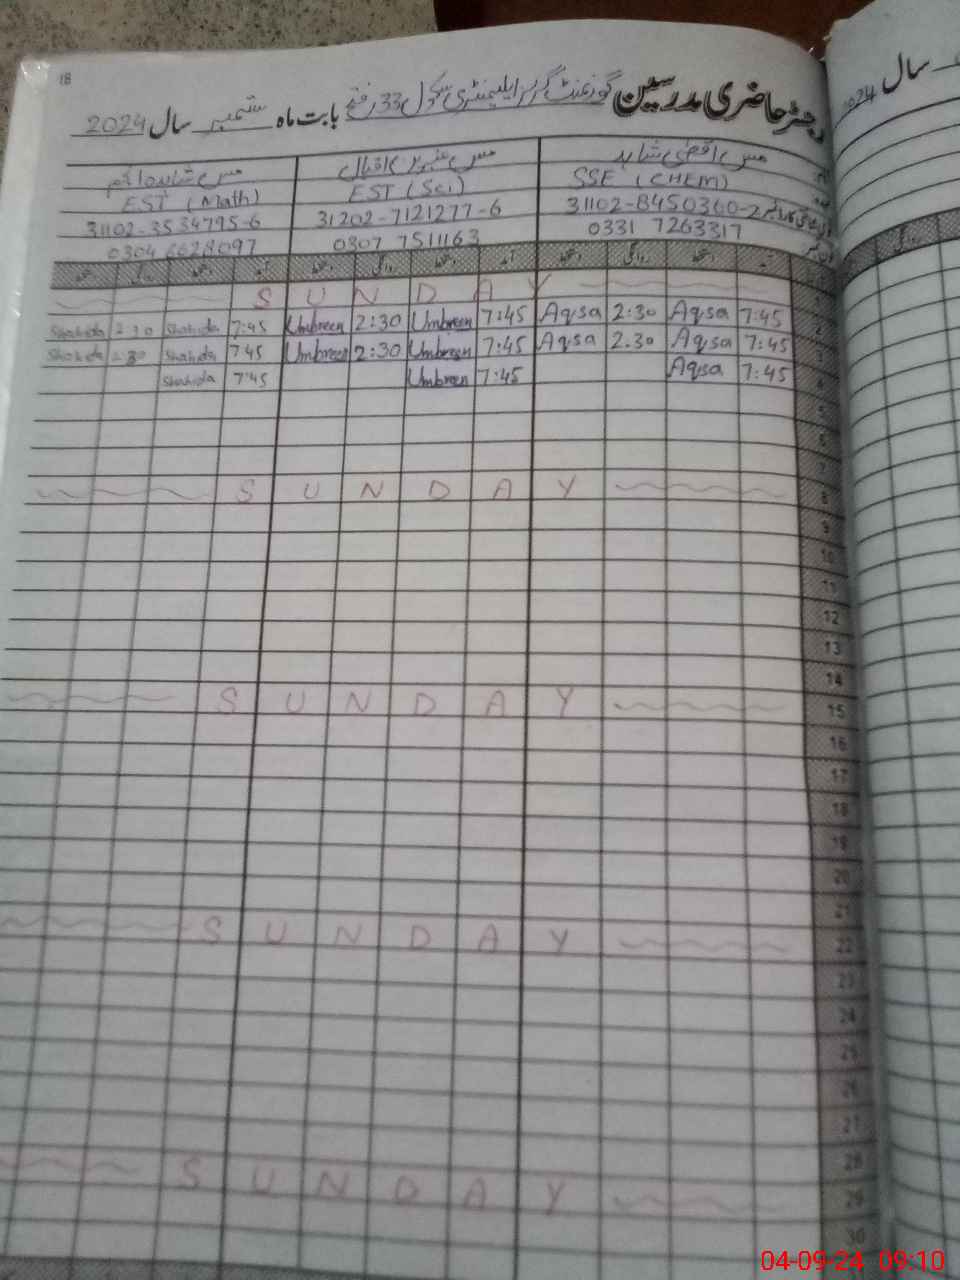 18
رجسٹر حاضری مدرسین گورنمنٹ گرلز ایلیمنٹری سکول 33 بابت ماہ ستمبر سال 2024
مس اقصٰی شاہد مس عنبرین اقبال مس شاہدہ
SSE (CHEM) EST (Sci) EST (Math)
31102-8450360-2 31202-7121277-6 31102-3534795-6
0331 7263317 0307 7511163 0304 6628097
آمد دستخط روانگی دستخط آمد دستخط روانگی دستخط آمد دستخط روانگی دستخط
S U N D A Y 1
Shahida 2:30 Shahida 7:45 Umbreen 2:30 Umbreen 7:45 Aqsa 2:30 Aqsa 7:45 2
Shahida 2:30 Shahida 7:45 Umbreen 2:30 Umbreen 7:45 Aqsa 2:30 Aqsa 7:45 3
Shahida 7:45 Umbreen 7:45 Aqsa 7:45 4
5
6
7
S U N D A Y 8
9
10
11
12
13
14
S U N D A Y 15
16
17
18
19
20
21
S U N D A Y 22
23
24
25
26
27
28
S U N D A Y 29
30
سال 2024
روانگی
04-09-24 09:10